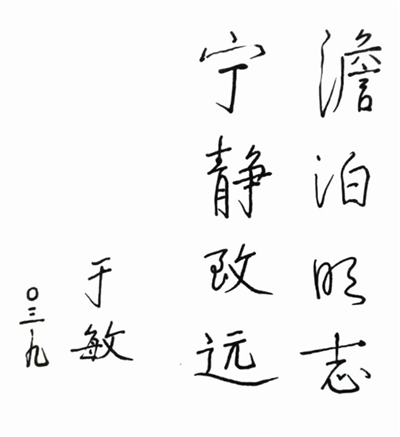 澹泊明志
宁静致远
于敏
〇三、九